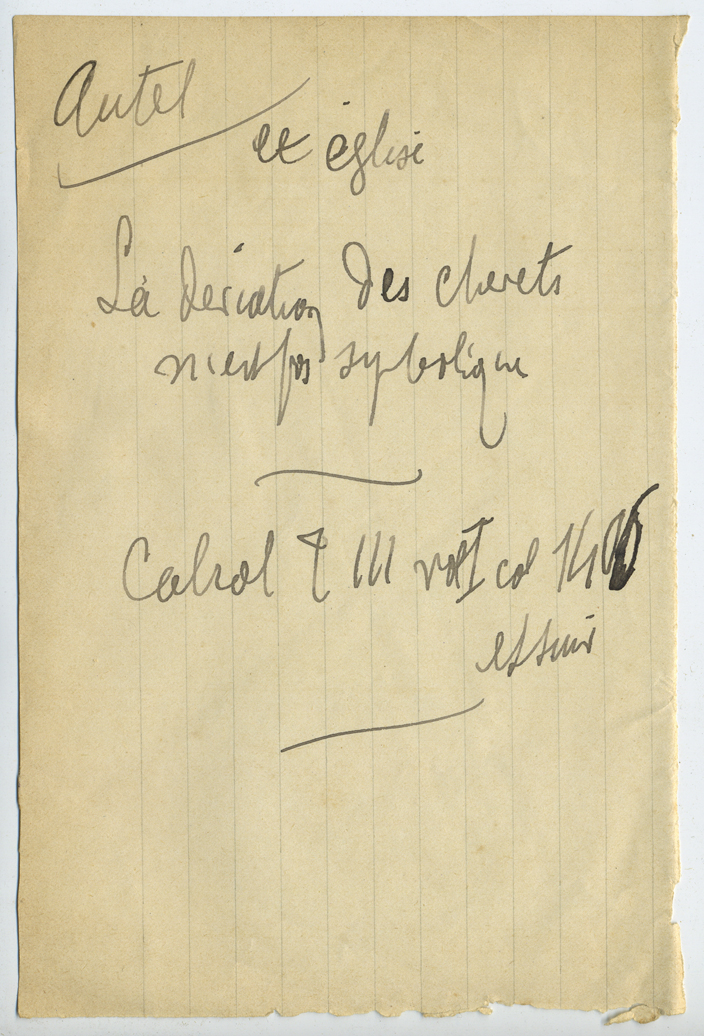 Autel
et église
La déviation des chevets
n'est pas symbolique
Cabrol T III vol I col
et suiv